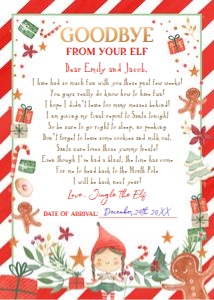 GOODBYE
FROM YOUR ELF
Dear Emily and Jacob,
I have had so much fun with you these past few weeks!
You guys really do know how to have fun!
I hope I didn't leave too many messes behind!
I am giving my final report to Santa tonight
So be sure to go right to sleep, no peeking
Don't forget to leave some cookies and milk out,
Santa sure loves those yummy treats!
Even though I've had a blast, the time has come
For me to head back to the North Pole
I will be back next year!
Love, Jingle The Elf
DATE OF ARRIVAL: December, 24th, 20XX